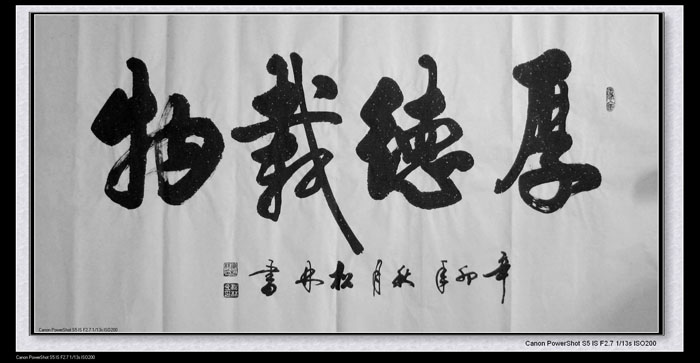 厚德载物
辛卯年秋月松林書
Canon PowerShot S5 IS F2.7 1/13s ISO200
Canon PowerShot S5 IS F2.7 1/13s ISO200
Canon PowerShot S5 IS F2.7 1/13s ISO200